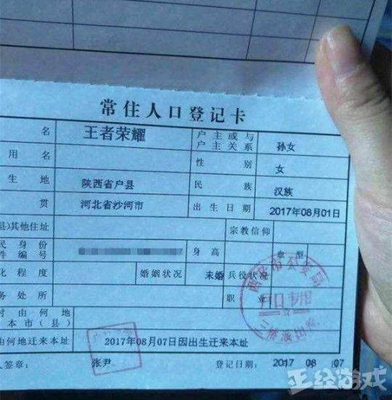 常住人口登记卡
名 王者荣耀 户主或与户主关系 孙女
用名 性别 女
生地 陕西省户县 民族 汉族
贯 河北省沙河市 出生日期 2017年08月01日
县)其他住址 宗教信仰
民身份件编号 身高 血型
化程度 婚姻状况 未婚 兵役状况
务处所 职业
时由何地本市(县)
由何地迁来本址 2017年08月07日因出生迁来本址
人签章: 张尹 登记日期: 2017 08 07
正经游戏